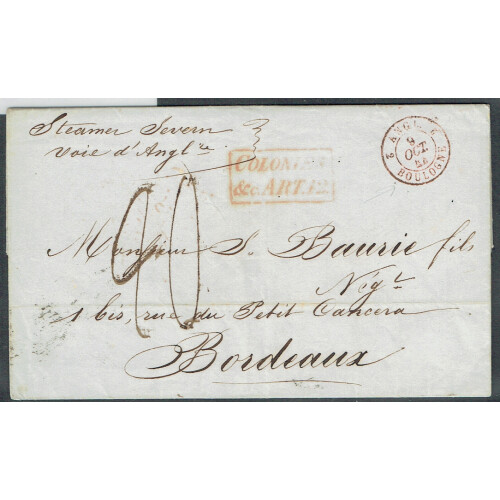 Steamer Severn
voie d'Angl.re
2 ANGL. 2
9
OCT.
BOULOGNE
COLONIES
&c. ART. 12.
90
Monsieur S. Baurie fils
Négt
1 bis, rue du Petit Cancera
Bordeaux